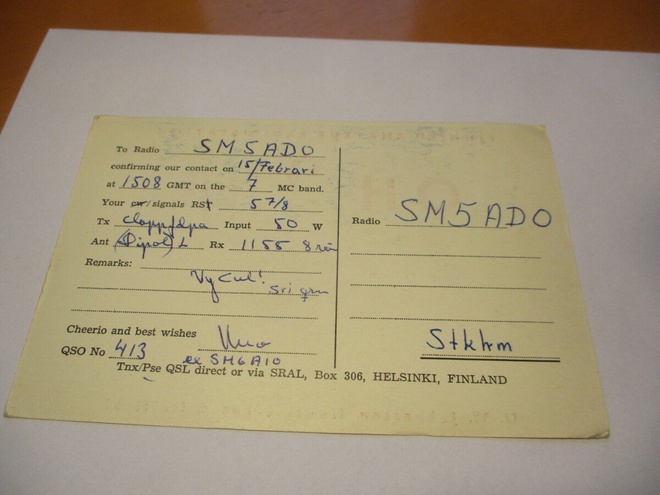 To Radio SM5ADO
confirming our contact on 15/Februari
at 1508 GMT on the 7 MC band.
Your cw/signals RST 57/8
Tx clapp/dpa Input 50 W
Ant (Dipol) L Rx 1155 8
Remarks:
Vy Cul!
Sri qrm
Cheerio and best wishes
QSO No 413 ex SM6AIO
Radio SM5ADO
Stkhm
Tnx/Pse QSL direct or via SRAL, Box 306, HELSINKI, FINLAND